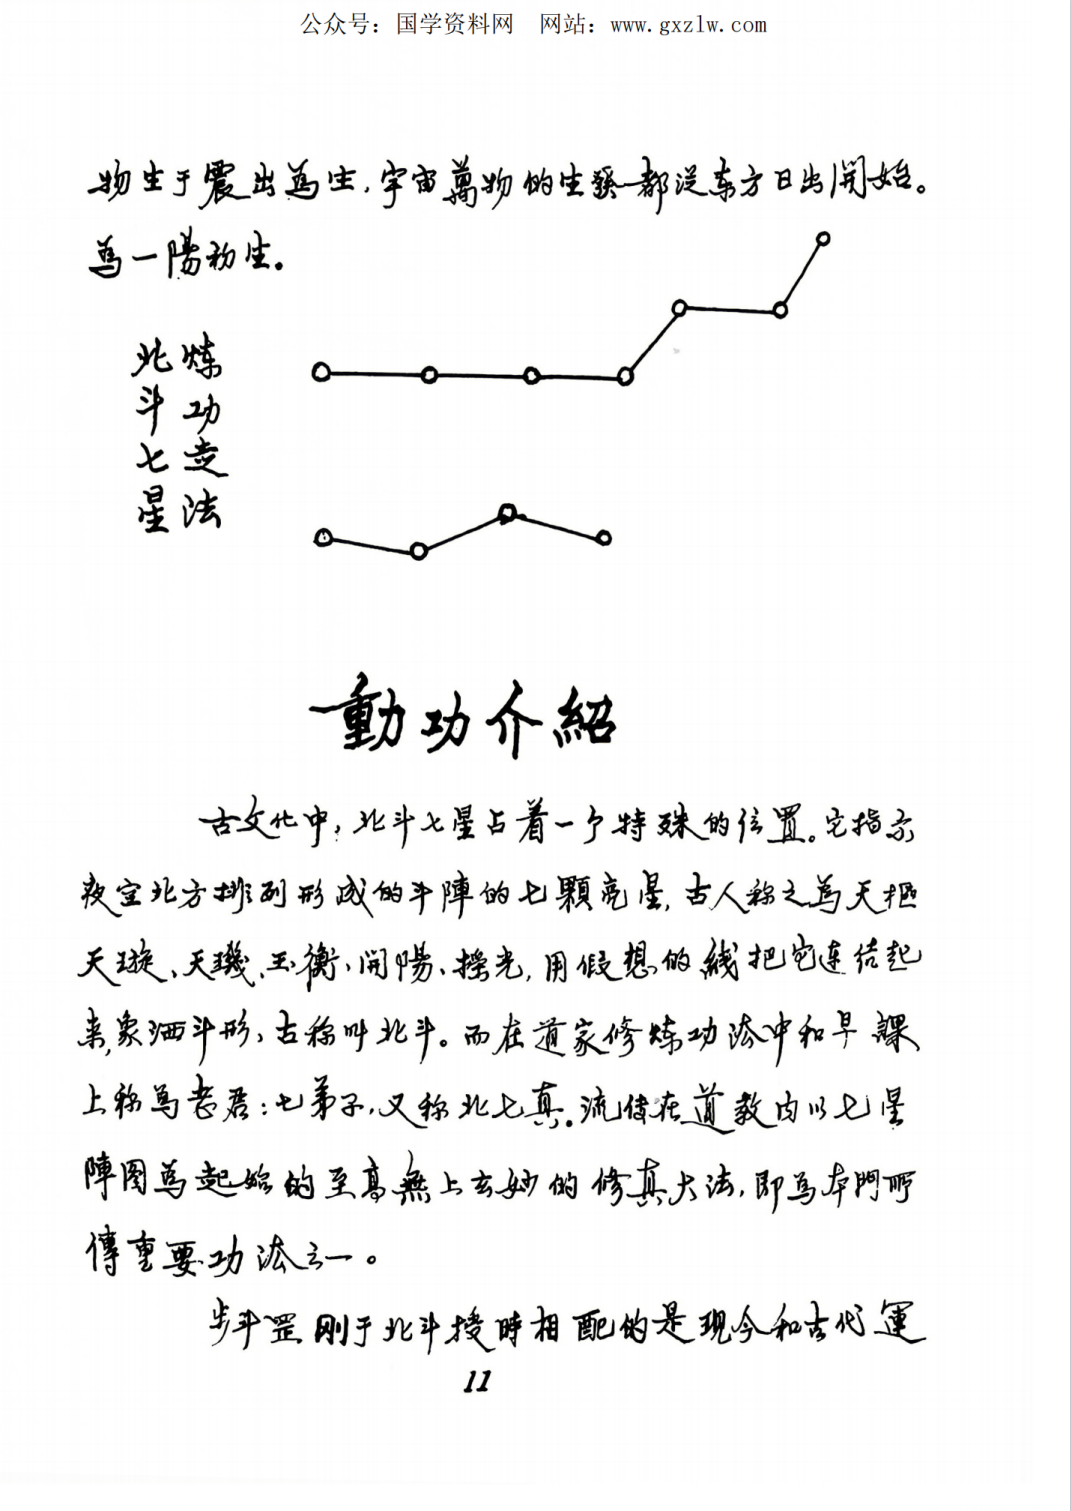 公众号：国学资料网　网站：www.gxzlw.com
物生于震出為生，宇宙萬物的生發都从东方日出開始。
為一陽初生。
北斗七星
炼功走法
動功介紹
古文化中，北斗七星占着一个特殊的位置。它指示
夜空北方排列形成的斗陣的七顆亮星，古人称之為天樞
天璇、天璣、玉衡、開陽、摇光，用假想的綫把它连结起
来，象洒斗形，古称叫北斗。而在道家修炼功法中和早課
上称為老君：七弟子，又称北七真。流传在道教内以七星
陣图為起始的至高無上玄妙的修真大法，即為本門所
傳重要功法之一。
步斗罡剛于北斗授時相配的是現今和古代運
11